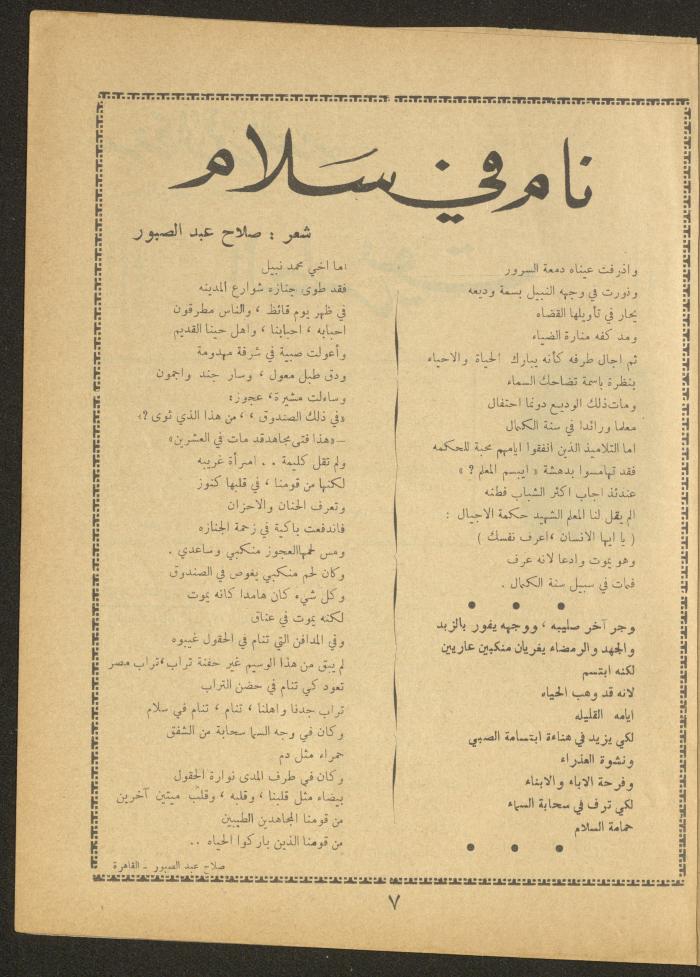 نام في سلام
شعر : صلاح عبد الصبور
واذرفت عيناه دمعة السرور
ونورت في وجهه النبيل بسمة وديعه
يحار في تأويلها القضاه
ومد كفه منارة الضياء
ثم اجال طرفه كأنه يبارك الحياة والاحياء
بنظرة باسمة تضاحك السماء
ومات ذلك الوديع دونما احتفال
معلما ورائدا في سنة الكمال
اما التلاميذ الذين انفقوا ايامهم محبة للحكمه
فقد تهامسوا بدهشة « ايبسم المعلم ? »
عندئذ اجاب اكثر الشباب فطنه
الم يقل لنا المعلم الشهيد حكمة الاجيال :
( يا ايها الانسان ، اعرف نفسك )
وهو يموت وادعا لانه عرف
فمات في سبيل سنة الكمال .
● ● ●
وجر آخر صليبه ، ووجهه يفور بالزبد
والجهد والرمضاء يفريان منكبين عاريين
لكنه ابتسم
لانه قد وهب الحياه
ايامه القليله
لكي يزيد في هناءة ابتسامة الصبي
ونشوة العذراء
وفرحة الاباء والابناء
لكي ترف في سحابة السماء
حمامة السلام
● ● ●
اما اخي محمد نبيل
فقد طوى جنازه شوارع المدينه
في ظهر يوم قائظ ، والناس مطرقون
احبابه ، احبابنا ، واهل حينا القديم
وأعولت صبية في شرفة مهدومة
ودق طبل معول ، وسار جند واجمون
وساءلت مشيرة ، عجوز :
«في ذلك الصندوق ، ، من هذا الذي ثوى ?»
– «هذا فتى مجاهد قد مات في العشرين»
ولم تقل كليمة . . امرأة غريبه
لكنها من قومنا ، في قلبها كنوز
وتعرف الحنان والاحزان
فاندفعت باكية في زحمة الجنازه
ومس لحمها العجوز منكبي وساعدي .
وكان لحم منكبي يغوص في الصندوق
وكل شيء كان هامدا كانه يموت
لكنه يموت في عناق
وفي المدافن التي تنام في الحقول غيبوه
لم يبق من هذا الوسيم غير حفنة تراب ، تراب مصر
تعود كي تنام في حضن التراب
تراب جدنا واهلنا ، تنام ، تنام في سلام
وكان في وجه السما سحابة من الشفق
حمراء مثل دم
وكان في طرف المدى نوارة الحقول
بيضاء مثل قلبنا ، وقلبه ، وقلب ميتين آخرين
من قومنا المجاهدين الطيبين
من قومنا الذين باركوا الحياه ..
صلاح عبد الصبور - القاهرة
٧